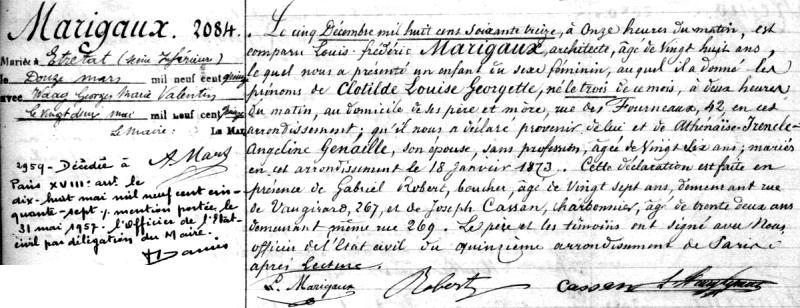 Marigaux. 2084.
Mariée à Etretat (Seine Inférieure)
le Douze mars mil neuf cent quinze
avec Waag Georges Marie Valentin
Le vingt deux mai mil neuf cent quinze
Le Maire:
A Mary
2959 - Décédée à
Paris XVIII: art. le
dix-huit mai mil neuf cent cin-
quante-sept ; mention portée le
31 mai 1957 - l'Officier de l'Etat-
civil par délégation du Maire.
Le cinq Décembre mil huit cent soixante treize, à Onze heures du matin, est
comparu Louis-frédéric Marigaux, architecte, âgé de Vingt huit ans,
lequel nous a présenté un enfant du sexe féminin, auquel il a donné les
prénoms de Clotilde Louise Georgette, née le trois de ce mois, à deux heures
du matin, au domicile de ses père et mère, rue des Fourneaux, 42 en cet
arrondissement; qu'il nous a déclaré provenir de lui et de Athénaïse-Irencle-
Angeline Genaille, son épouse, sans profession, âgée de Vingt six ans; mariés
en cet arrondissement le 18 Janvier 1873. Cette déclaration est faite en
présence de Gabriel Robert, boucher, âgé de Vingt sept ans, demeurant rue
de Vaugirard, 267, et de Joseph Cassan, charbonnier, âgé de trente deux ans
demeurant même rue 269. Le père et les témoins ont signé avec Nous
officier de l'Etat civil du quinzième arrondissement de Paris
après Lecture.
L. Marigaux Robert Cassan